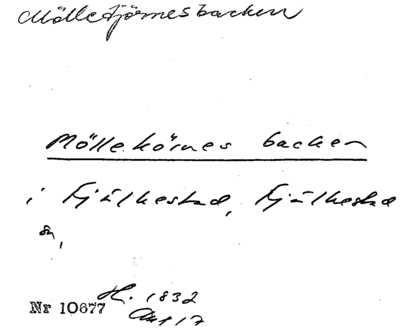 Möllekjörnesbacken
Möllekörnes backen
i Fjälkestad, Fjälkestad
sn,
H. 1832
Nr 10677 Akt 17